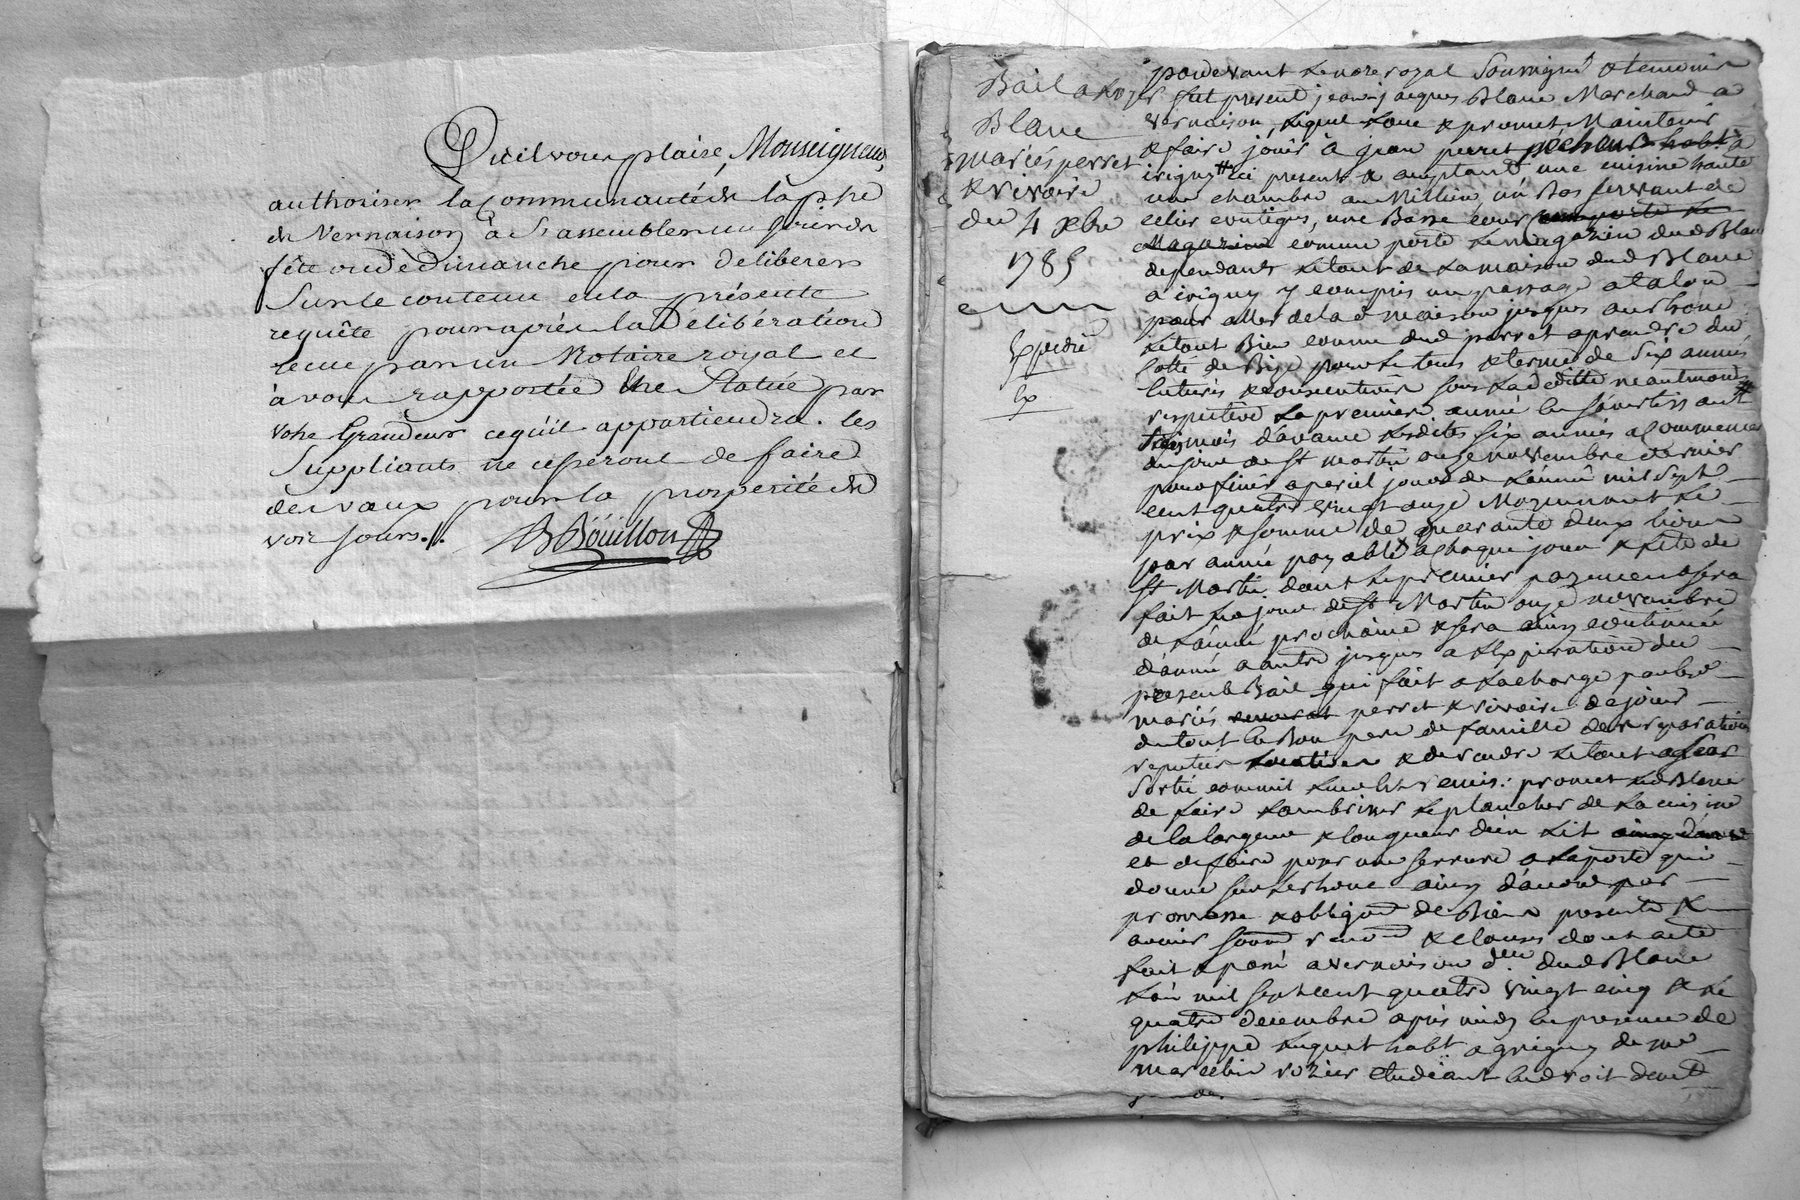 Qu'il vous plaise, Monseigneur,
authoriser la Communauté de la ppsse
de Vernaison à s'assembler un jour de
fête ou de dimanche pour deliberer
Sur le contenu en la présente
requête pour après la Délibération
recue par un Notaire royal et
à vous rapportée être Statué par
votre Grandeur ce qu'il appartiendra. les
Suppliants ne cesseront de faire
des vœux pour la prosperité de
vos jours./.
BBoüillon
Bail a loyer
Blanc
mariés perret
& rivoire
du 4 Xbre
1785
Expedié
Ex
pardevant Le nore royal Soussigné & temoins
fut present jean jacques Blanc Marchand a
vernaison, Lequel Loue & promet Maintenir
& faire jouir à jean perret pécheur habt à
irigny # ici present & acceptant une cuisine haute
une chambre au Millieu un bas servant de
celier contigus, une Basse cour
Magazin comme porte Le magazin dud Blanc
dependants Le tout de La maison dud Blanc
a irigny y compris un passage a talon
pour aller de la d maison jusques au rhone
Le tout Bien connu dud perret a prendre du
Cotté de Bize pour Le tems & terme de Six années
Entieres & consecutives sous La deditte neantmoins #
respective La premiere année En s'avertissant
trois mois d'avance Lesdites six années a Commencer
du jour de St martin onze novembre dernier
pour finir a pareil jour de L'année mil sept
cent quatre vingt onze Moyennant Le
prix & somme de quarante deux livres
par année payable a chaque jour & fete de
St Martin dont Le premier payement sera
fait Le jour de St Martin onze novembre
de L'année prochaine & sera ainsy continué
d'année a autre jusques a L'Expiration du
present Bail qui fait a La charge par les
mariés perret & rivoire de jouir
du tout En Bon pere de famille des reparations
reputées Locatives & de rendre Le tout a Leur
Sortie comme il Leur Est remis: promet Led Blanc
de faire Lambrisser Le plancher de La cuisine
de la largeur & longueur d'un Lit
et de faire poser une serrure a La porte qui
donne sur Le rhone ainsy d'accord par
promesse & obligeant de Biens presents &
avenir soumd renond & clauses dont acte
fait & passé a vernaison deure dud Blanc
L'an mil sept cent quatre vingt cinq & Le
quatre decembre après midy En presence de
philippe Luquet habt a grigny de me
marcelin rozier etudiant En droit demt